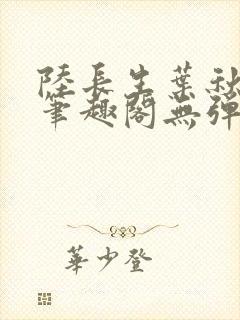 陸長生葉秋
筆趣閣無彈
華少登